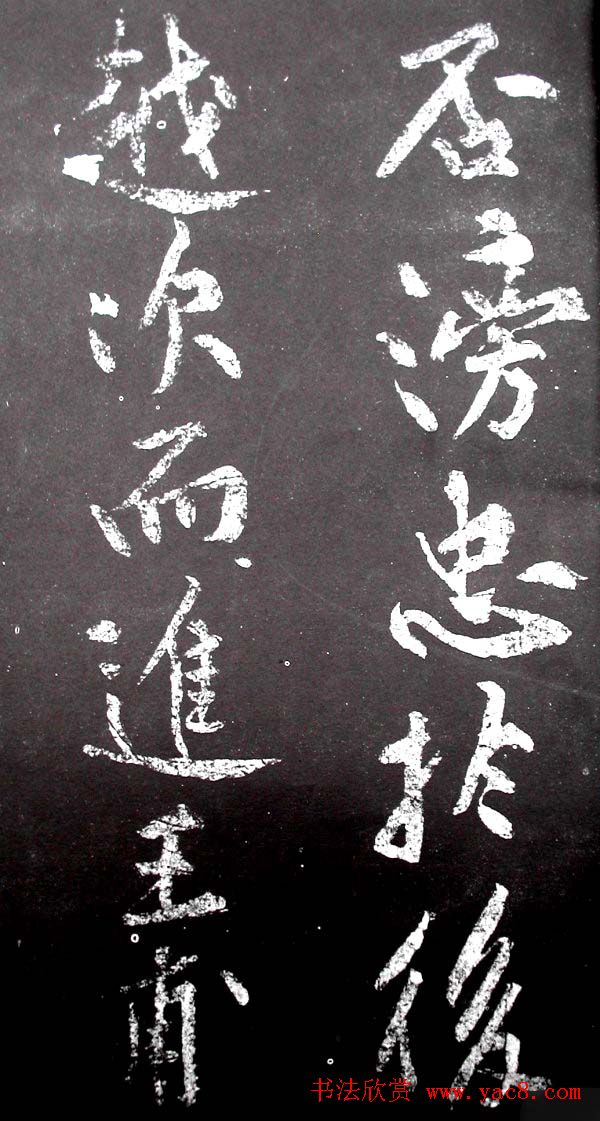 否滂忠於後
越次而進王甫
书法欣赏 www.yac8.com